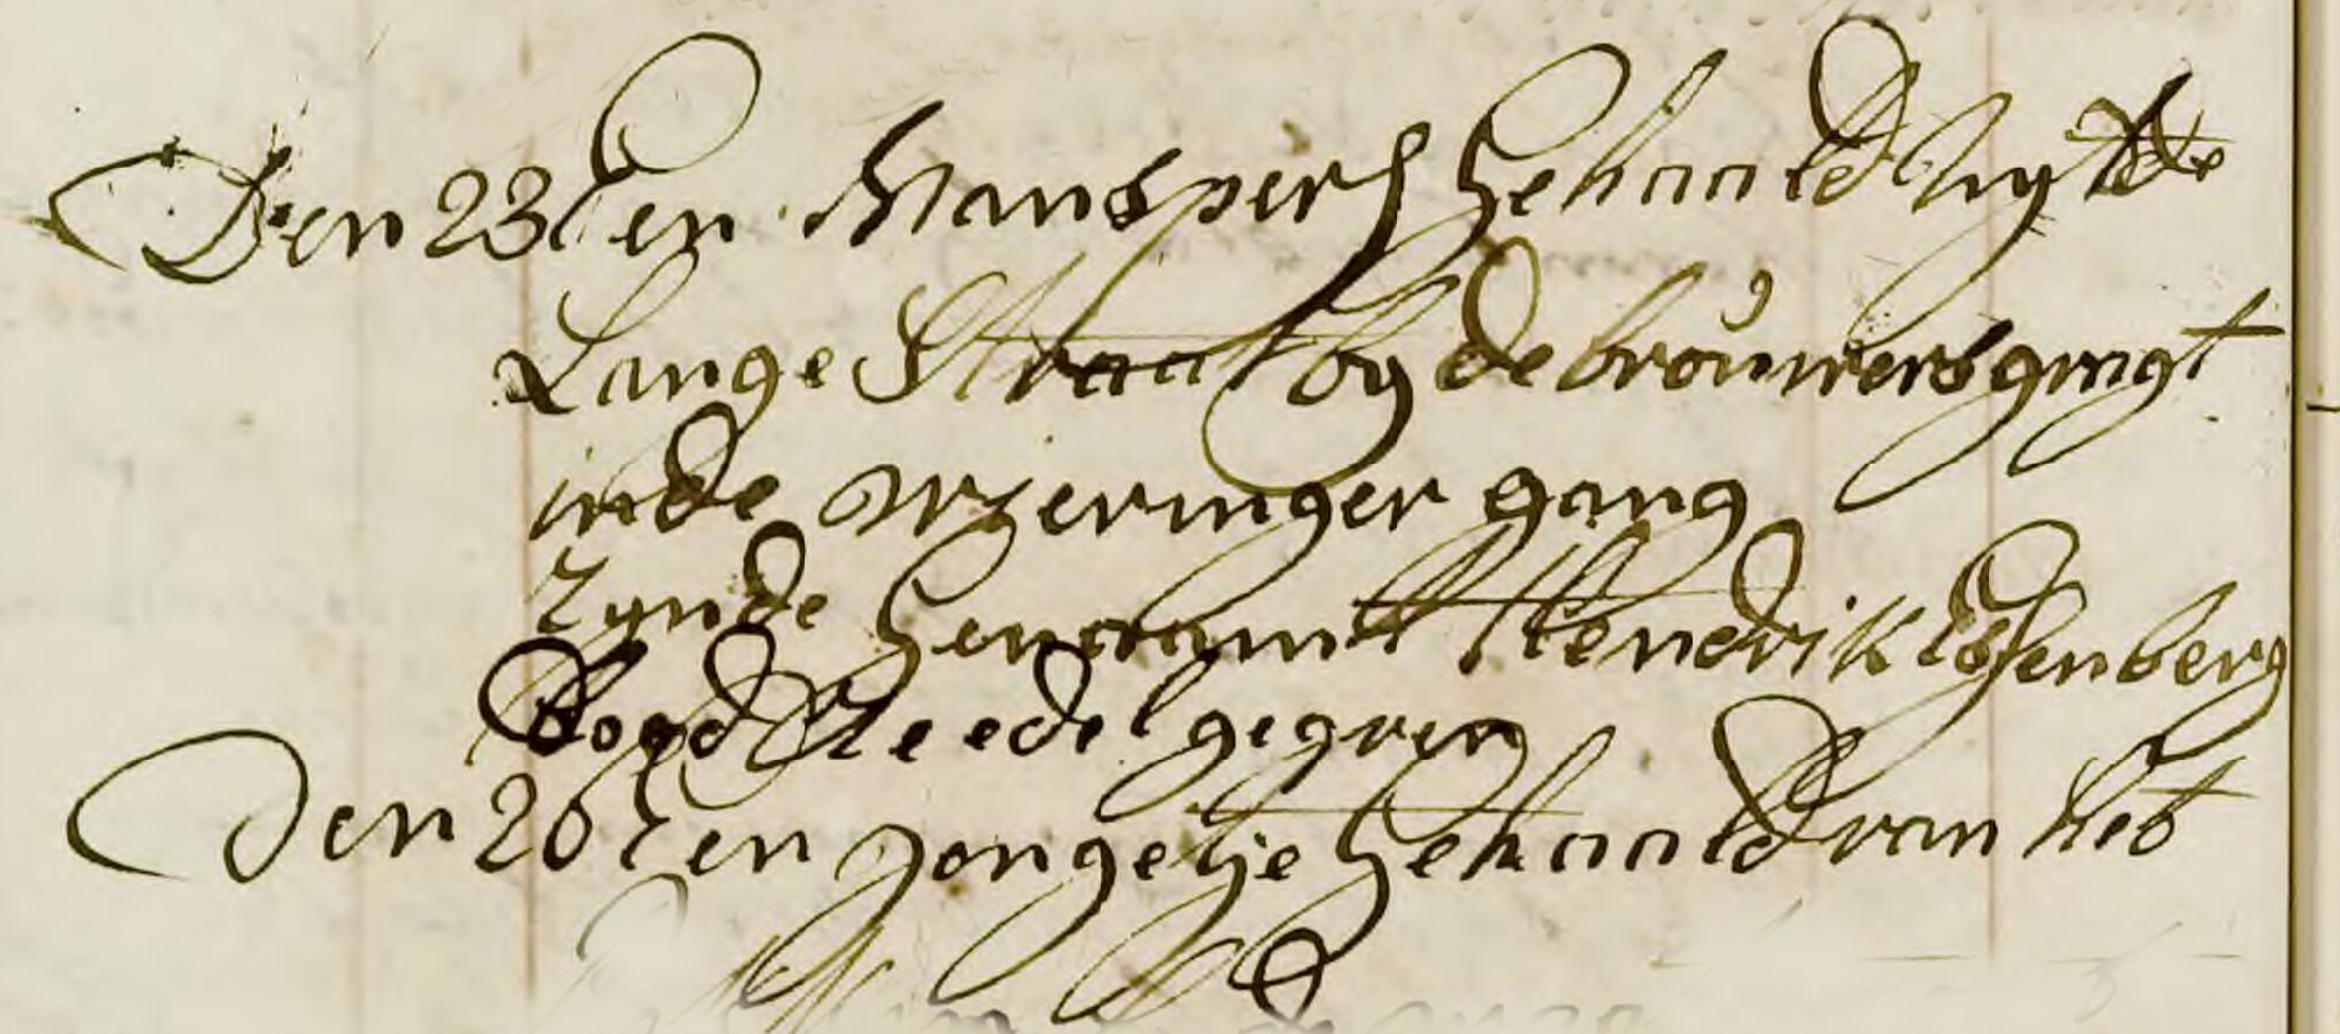 Den 23 Een Manspers Gehaald uyt de
Lange Straat by de brouwersgragt
in de wzeringer gang
zynde Genaamt Hendrik Essenberg
Dood Ceedel gegeven
Den 26 Een Jongetje Gehaald van het